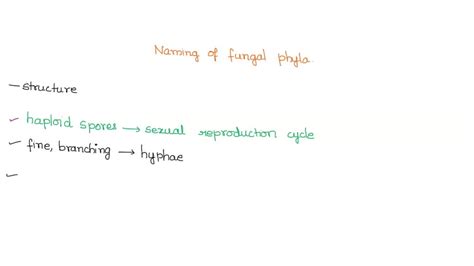 Naming of fungal phyla.
– structure
✓ haploid spores → sexual reproduction cycle
✓ fine, branching → hyphae
✓